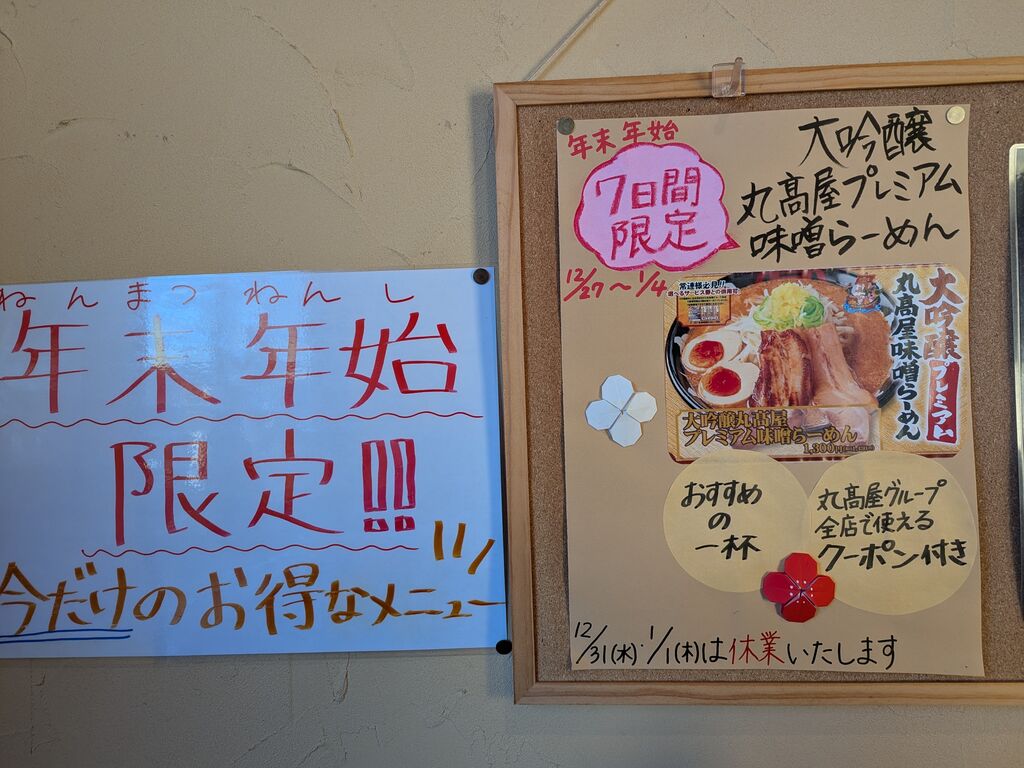 ねんまつねんし
年末年始
限定!!!
今だけのお得なメニュー
年末年始
7日間
限定
12/27～1/4
大吟醸
丸髙屋プレミアム
味噌らーめん
常連様必見!!
大吟醸プレミアム
丸髙屋味噌らーめん
大吟醸丸髙屋
プレミアム味噌らーめん
1,300円
おすすめ
の
一杯
丸髙屋グループ
全店で使える
クーポン付き
12/31(水)・1/1(木)は休業いたします